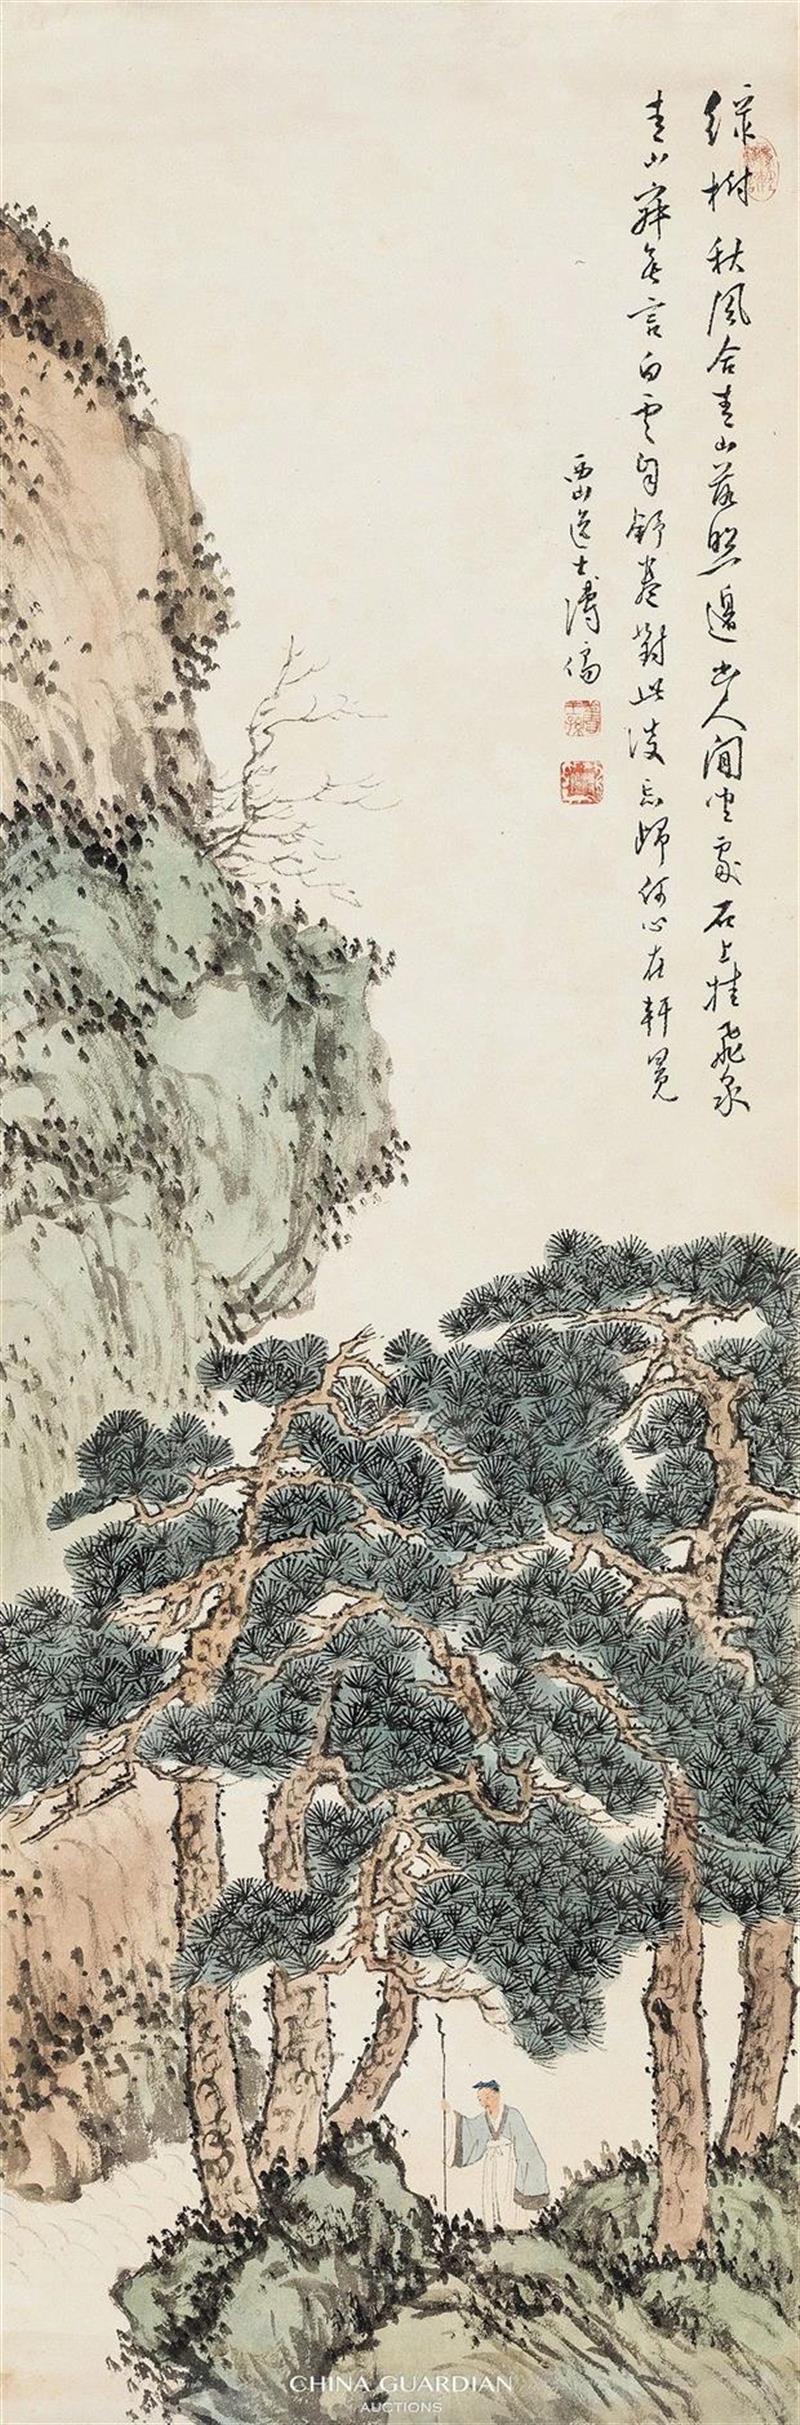 綠樹秋風合青山落照邊幽人閒坐處石上挂飛泉
青山寂無言白雲自舒卷對此淡忘歸何心在軒冕
西山逸士溥儒
CHINA GUARDIAN
AUCTIONS